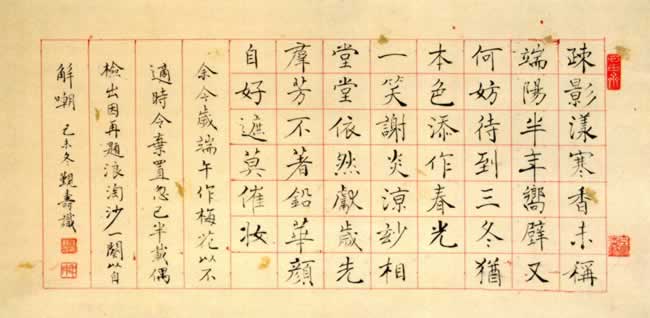 疎影漾寒香未稱
端陽半年嚮壁又
何妨待到三冬猶
本色添作春光
一笑謝炎涼玅相
堂堂依然獻歲先
羣芳不著鉛華顏
自好遮莫催妝
余今歲端午作梅花以不
適時令棄置忽已半載偶
檢出因再題浪淘沙一闋以自
解嘲 己未冬 壽識